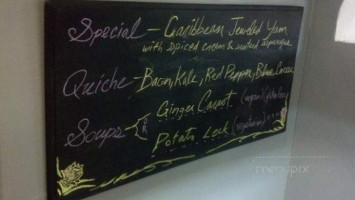 Special - Caribbean Jeweled Yam
with spiced cream & sauteed Asparagus
Quiche - Bacon, Kale, Red Pepper, Blue Cheese
Ginger Carrot (vegan)
Soups
Potato Leek (vegetarian)
menupix